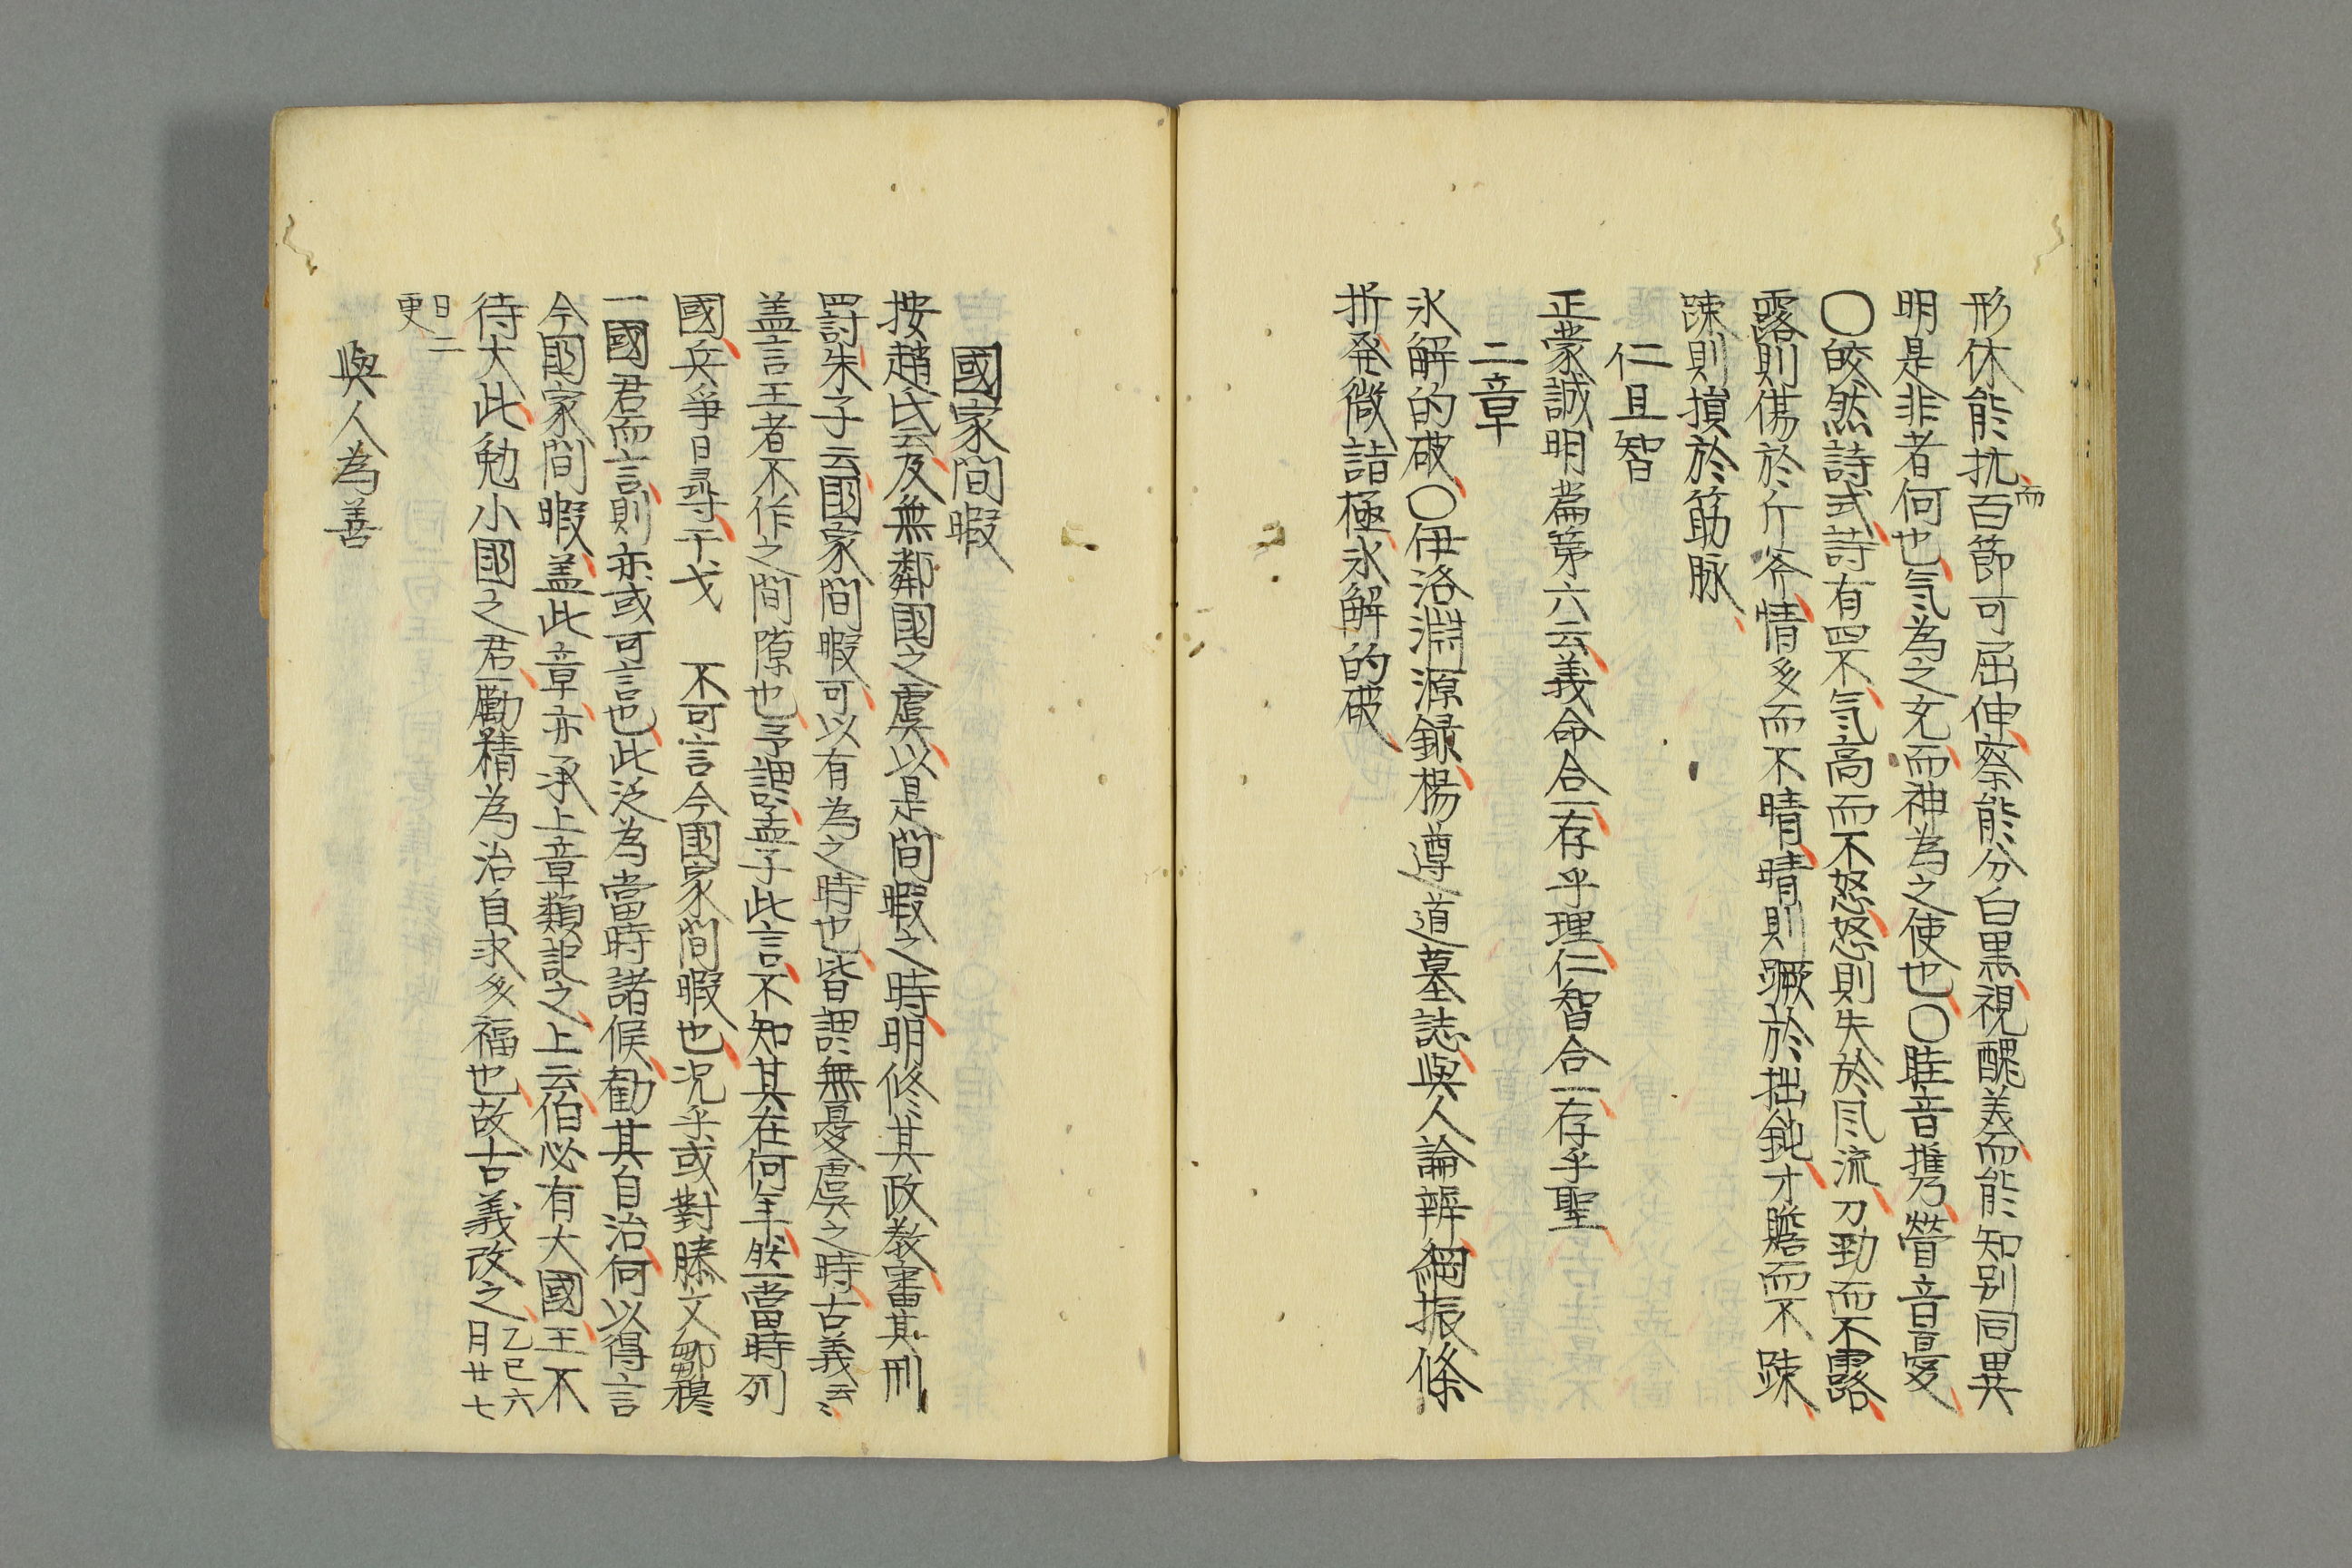 形休能抗而百節可屈伸察能分白黒視醜義而能知別同異
明是非者何也気為之充而神為之使也〇眭音携営音夐
〇皎然詩式詩有四不気高而不怒怒則失於風流力勁而不露
露則傷於斤斧情多而不暗暗則蹶於拙鈍才贍而不疎
疎則損於筋脉
仁且智
正蒙誠明篇第六云義命合一存乎理仁智合一存乎聖
二章
氷解的破〇伊洛淵源録楊遵道墓誌與人論辨綱振條
折発微詣極氷解的破
國家間暇
按趙氏云及無鄰國之虞以是間暇之時明修其政教審其刑
罰朱子云國家間暇可以有為之時也皆謂無憂虞之時古義云〻
盖言王者不作之間隙也予謂孟子此言不知其在何年然當時列
國兵爭日尋干戈 不可言今國家間暇也况乎或對滕文鄒穆
一國君而言則亦或可言也此泛為當時諸侯勧其自治何以得言
今國家間暇盖此章亦承上章類記之上云伯必有大國王不
待大此勉小國之君勵精為治自求多福也故古義改之乙巳六
月廿七
日二
更
與人為善